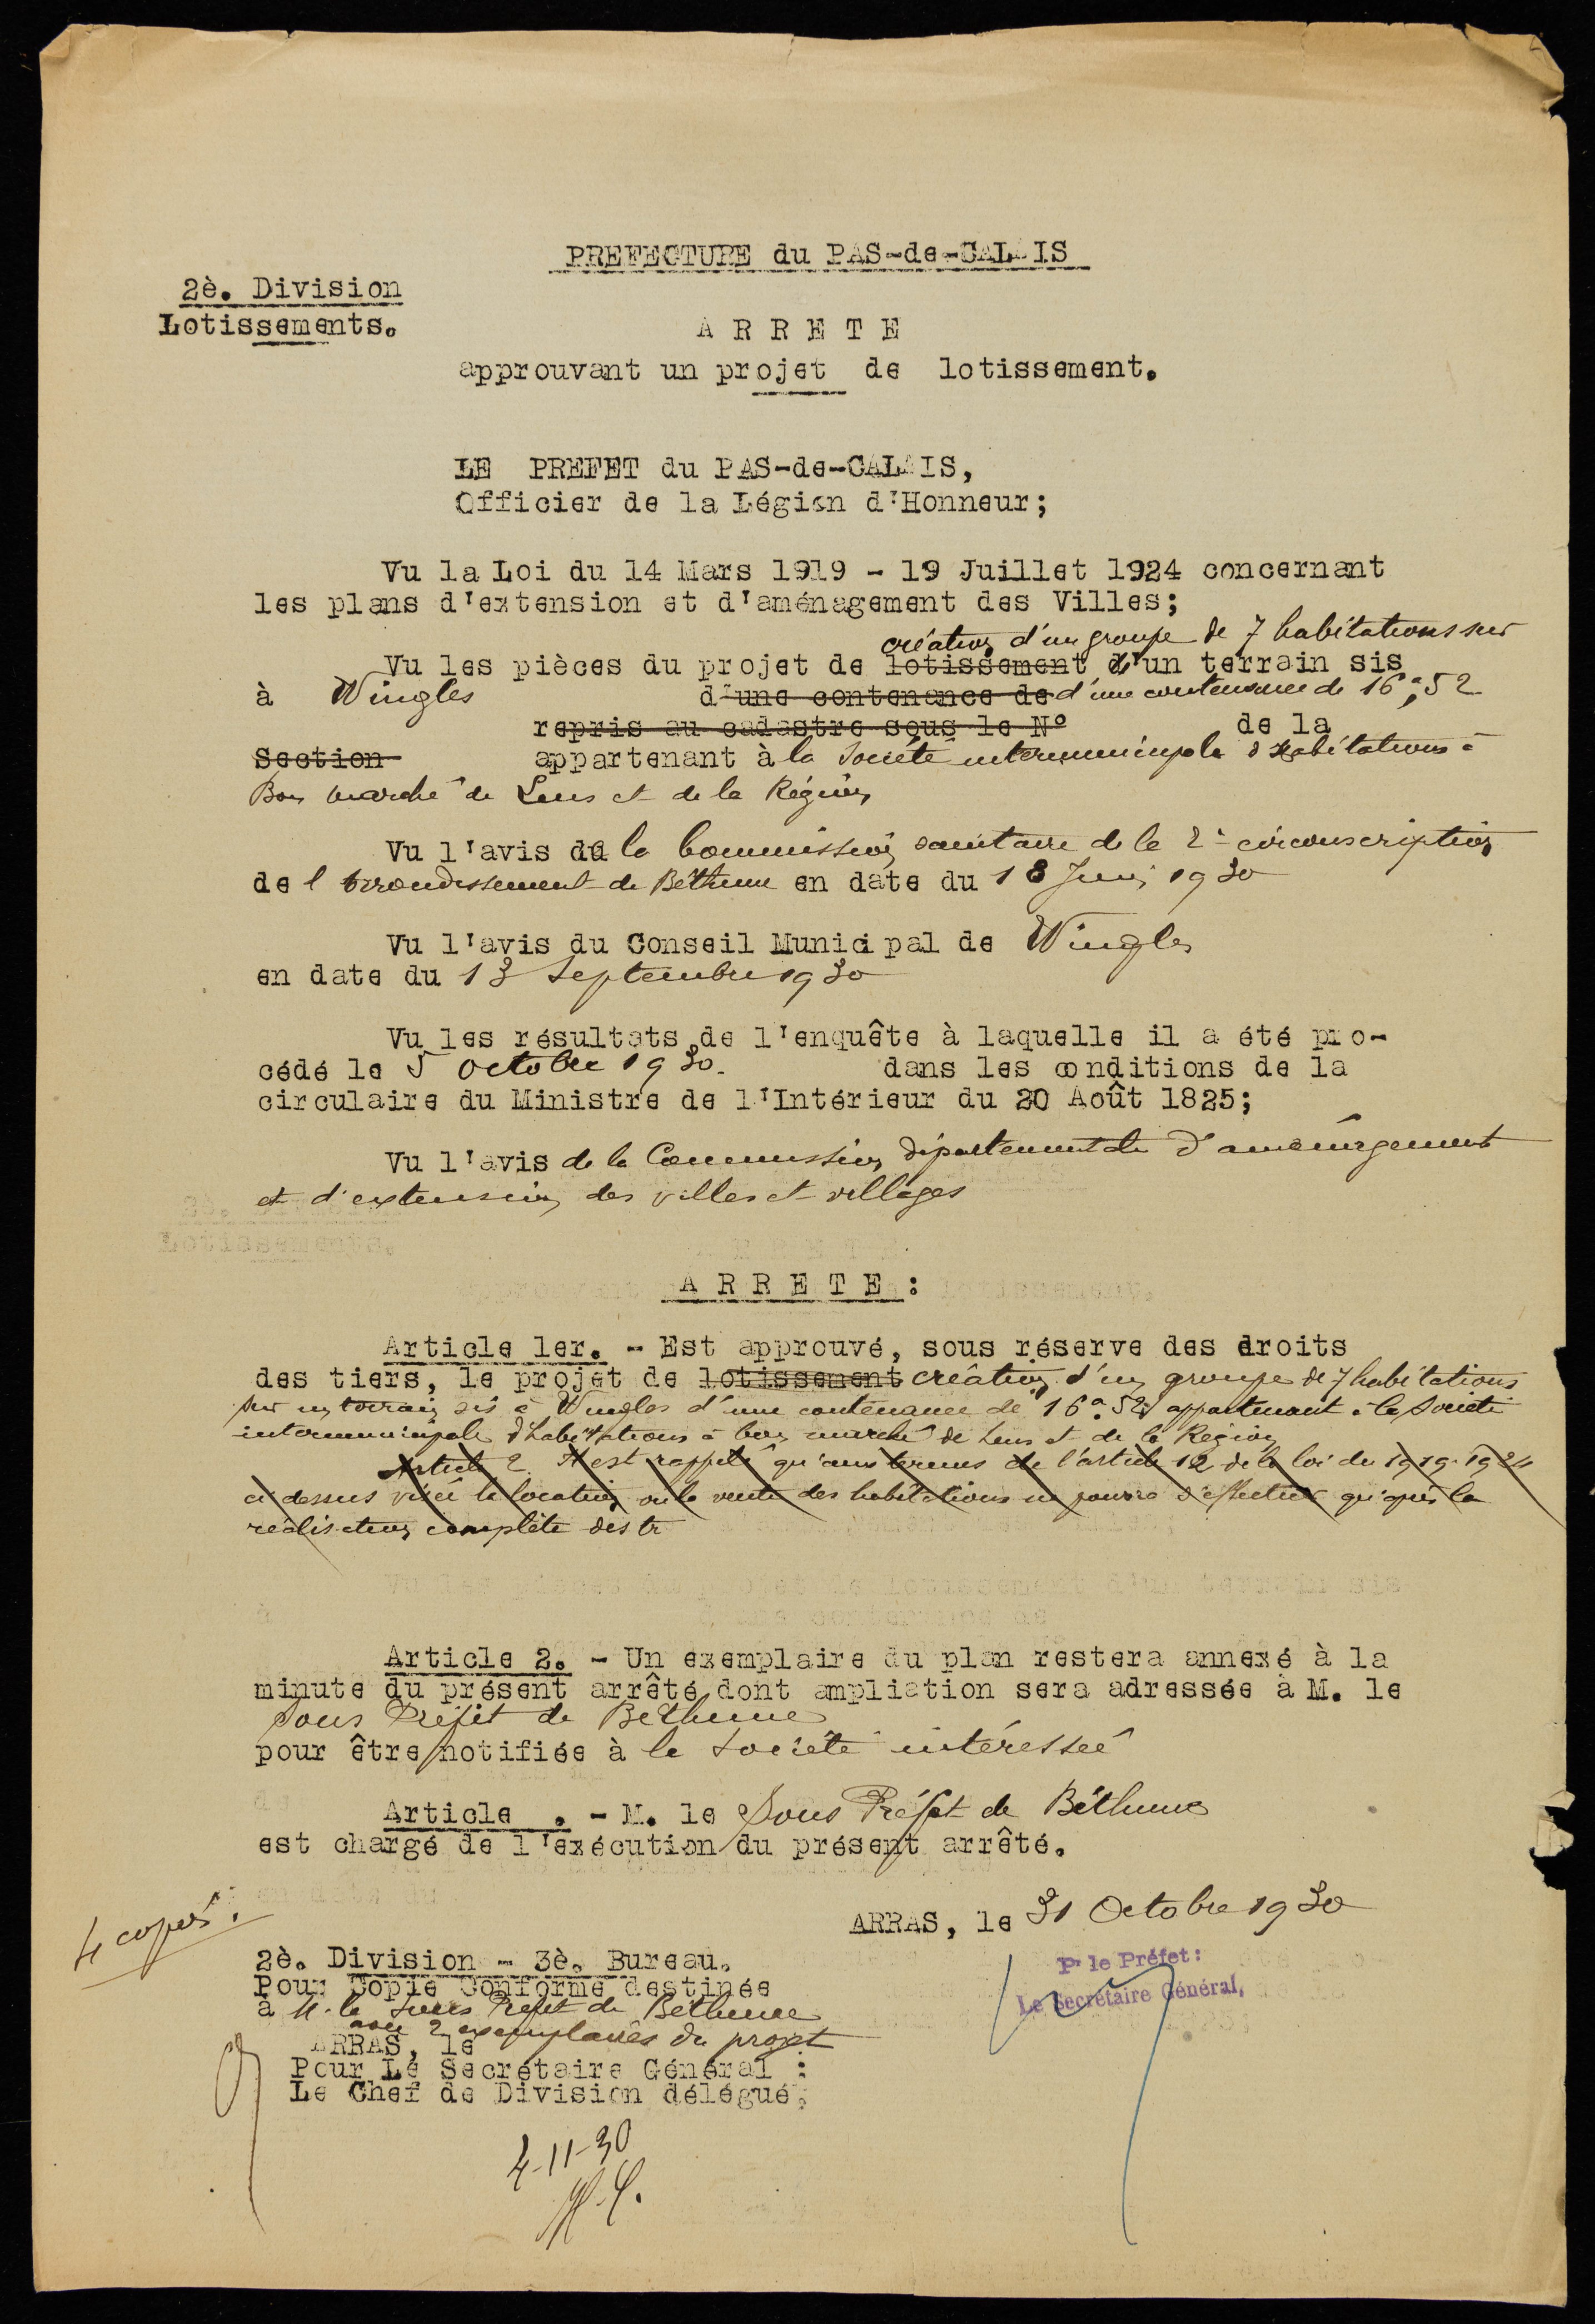 PREFECTURE du PAS-de-CALAIS
2è. Division
Lotissements.
A R R E T E
approuvant un projet de lotissement.
LE PREFET du PAS-de-CALAIS,
Officier de la Légion d'Honneur;
Vu la Loi du 14 Mars 1919 - 19 Juillet 1924 concernant
les plans d'extension et d'aménagement des Villes;
création d'un groupe de 7 habitations sur
Vu les pièces du projet de lotissement d'un terrain sis
à Wingles d'une contenance de d'une contenance de 16a,52
repris au cadastre sous le N° de la
Section appartenant à la Société intercommunale d'habitations à
Bon marché de Lens et de la Région
Vu l'avis du la Commission sanitaire de la 2e circonscription
de l'arrondissement de Béthune en date du 18 Juin 1930
Vu l'avis du Conseil Municipal de Wingles
en date du 13 Septembre 1930
Vu les résultats de l'enquête à laquelle il a été pro-
cédé le 5 octobre 1930. dans les conditions de la
circulaire du Ministre de l'Intérieur du 20 Août 1825;
Vu l'avis de la Commission départementale d'aménagement
et d'extension des villes et villages
A R R E T E :
Article 1er. - Est approuvé, sous réserve des droits
des tiers, le projet de lotissement création d'un groupe de 7 habitations
sur un terrain sis à Wingles d'une contenance de 16a.52 appartenant à la Société
intercommunale d'habitations à bon marché de Lens et de la Région
Article 2. Il est rappelé qu'aux termes de l'article 12 de la loi du 1919-1924
ci dessus visée la location ou la vente des habitations ne pourra s'effectuer qu'après la
réalisation complète des tr
Article 2. - Un exemplaire du plan restera annexé à la
minute du présent arrêté dont ampliation sera adressée à M. le
Sous Préfet de Béthune
pour être notifiée à la Société intéressée
Article . - M. le Sous Préfet de Béthune
est chargé de l'exécution du présent arrêté.
ARRAS, le 31 Octobre 1930
4 copies.
Pr le Préfet:
Le Secrétaire Général,
2è. Division - 3è. Bureau.
Pour Copie Conforme destinée
à M. le Sous Préfet de Béthune
avec 2 exemplaires du projet
ARRAS, le
Pour Le Secrétaire Général :
Le Chef de Division délégué,
4-11-30